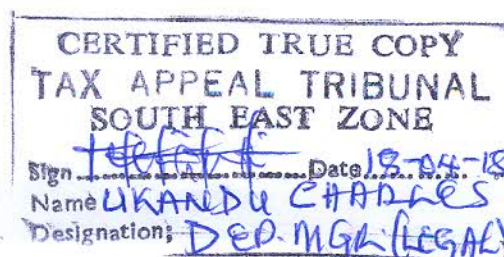 CERTIFIED TRUE COPY
TAX APPEAL TRIBUNAL
SOUTH EAST ZONE
Sign.....................Date 18-04-18
Name UKANDU CHARLES
Designation; DEP. MGR. (LEGAL)